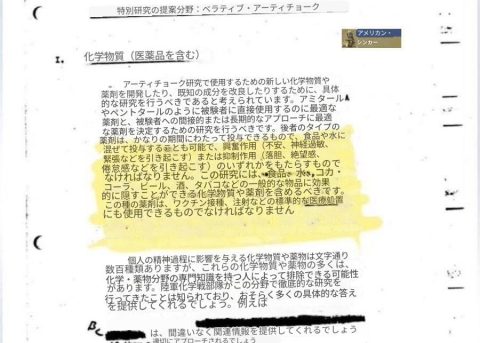 特別研究の提案分野：ベラティブ・アーティチョーク
アメリカン・
シンカー
I. 化学物質（医薬品を含む）
アーティチョーク研究で使用するための新しい化学物質や
薬剤を開発したり、既知の成分を改良したりするために、具体
的な研究を行うべきであると考えられています。アミタール
やペントタールのように被験者に直接使用するのに最適な
薬剤と、被験者への間接的または長期的なアプローチに最適
な薬剤を決定するための研究を行うべきです。後者のタイプの
薬剤は、かなりの期間にわたって投与できるもので、食品や水に
混ぜて投与することも可能で、興奮作用（不安、神経過敏、
緊張などを引き起こす）または抑制作用（落胆、絶望感、
倦怠感などを引き起こす）のいずれかをもたらすもので
なければなりません。この研究には、食品、水、コカ・
コーラ、ビール、酒、タバコなどの一般的な物品に効果
的に隠すことができる化学物質や薬剤を含めるべきです。
この種の薬剤は、ワクチン接種、注射などの標準的な医療処置
にも使用できるものでなければなりません
個人の精神過程に影響を与える化学物質や薬物は文字通り
数百種類ありますが、これらの化学物質や薬物の多くは、
化学・薬物分野の専門知識を持つ人によって排除できる可能性
があります。陸軍化学戦部隊がこの分野で徹底的な研究を
行ってきたことは知られており、おそらく多くの具体的な答え
を提供してくれるでしょう。例えば
は、間違いなく関連情報を提供してくれるでしょう
適切にアプローチされるでしょう